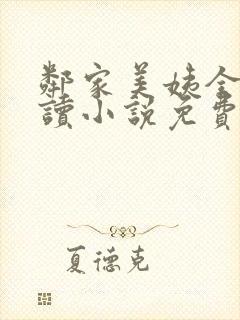 鄰家美姨全
讀小說免費
夏德克